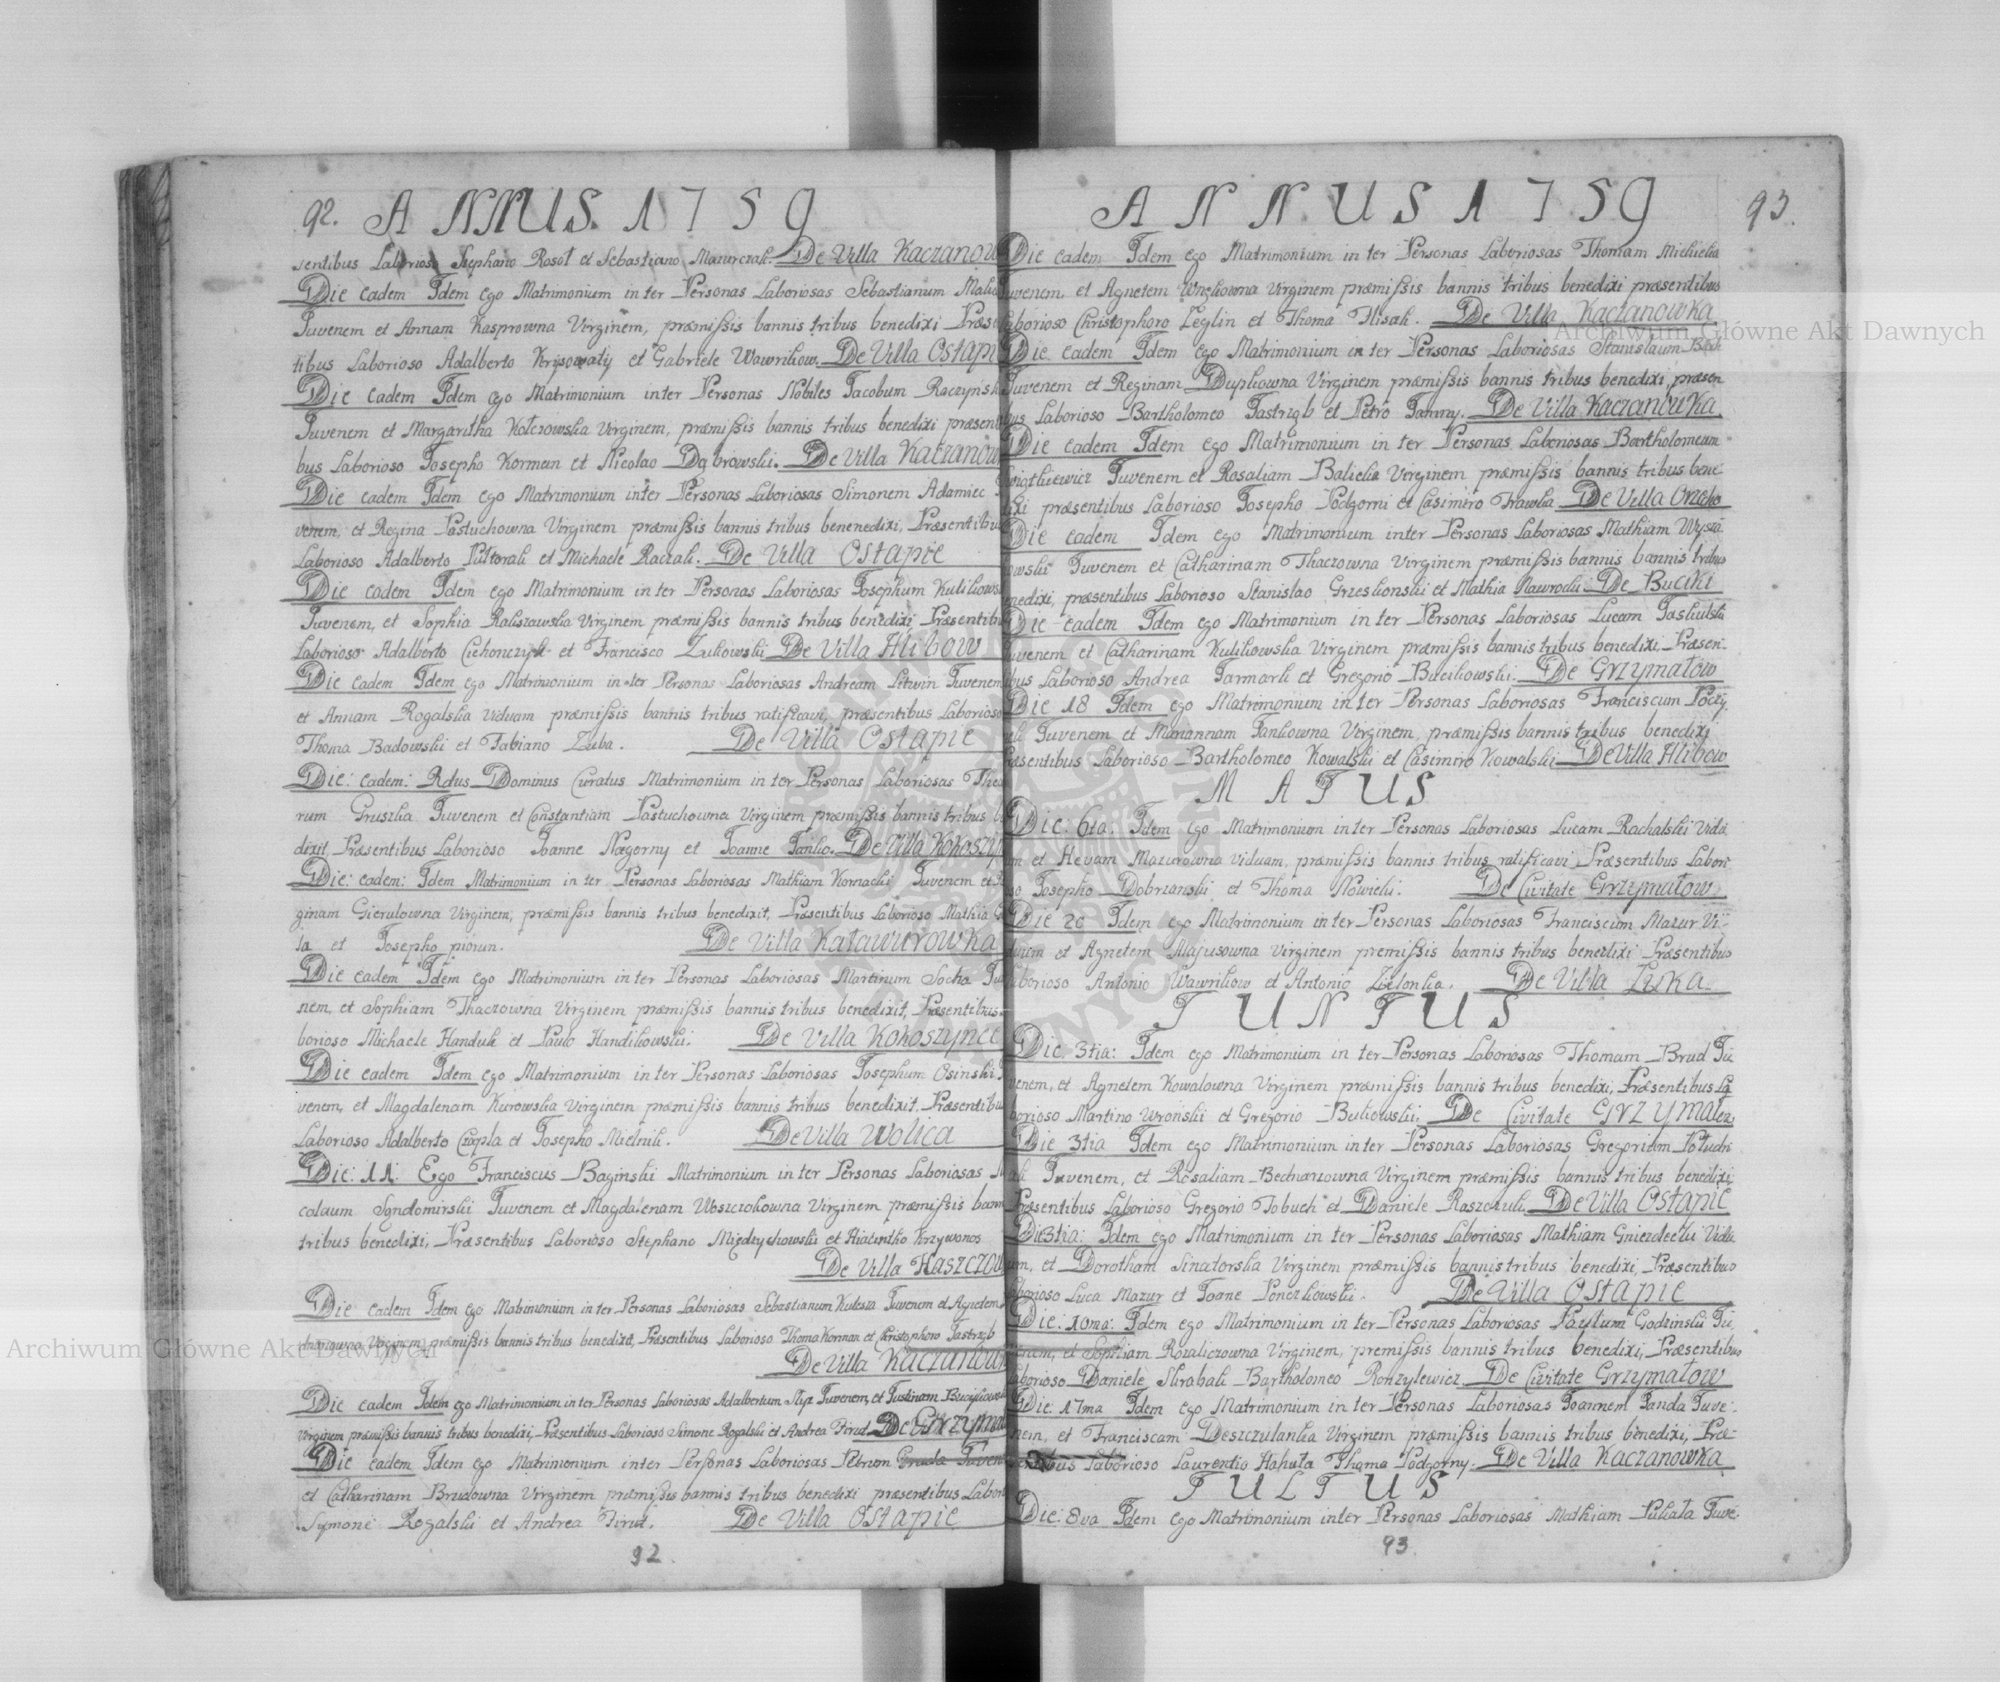 92. ANNUS. 1759
sentibus Laborioso Stephano Rosoł et Sebastiano Mazurczak. De Villa Kaczanow
Die eadem Idem ego Matrimonium inter Personas Laboriosas Sebastianum
Juvenem et Annam Kasprowna Virginem, præmissis bannis tribus benedixi Præsen
tibus Laborioso Adalberto et Gabriele Wawrikow. De Villa Ostapi
Die eadem Idem ego Matrimonium inter Personas Nobiles Jacobum Raczynsk
Juvenem et Margaritha Kolczowska Virginem, præmissis bannis tribus benedixi præsen
bus Laborioso Josepho Korman et Nicolao Dąbrowski. De Villa Kaczanow
Die eadem Idem ego Matrimonium inter Personas Laboriosas Simonem Adamiec
venem, et Regina Pastuchowna Virginem præmissis bannis tribus benenedixi, Præsentibus
Laborioso Adalberto Pultorak et Michaele Raczak. De Villa Ostapie
Die eadem Idem ego Matrimonium inter Personas Laboriosas Josephum Kulikows
Juvenem, et Sophia Kaliszawska Virginem præmissis bannis tribus benedixi Præsentibu
Laborioso Adalberto Cichonczyk et Francisco Zukowski De Villa Hlibow
Die eadem Idem ego Matrimonium inter Personas Laboriosas Andream Litwin Juvenem
et Annam Rogalska Viduam præmissis bannis tribus ratificavi, præsentibus Laborioso
Thoma Badowski et Fabiano Zuba. De Villa Ostapie
Die: eadem: Rdus Dominus Curatus Matrimonium inter Personas Laboriosas Theo
rum Gruszka Juvenem et Constantiam Pastuchowna Virginem præmissis bannis tribus
dixit Præsentibus Laborioso Joanne Nagorny et Joanne Panko. De Villa Kokoszyn
Die: eadem: Idem Matrimonium inter Personas Laboriosas Mathiam Kornacki Juvenem et
ginam Gierulowna Virginem, præmissis bannis tribus benedixit, Præsentibus Laborioso Mathia
la et Josepho piorun. De Villa Kaławurowka
Die eadem Idem ego Matrimonium inter Personas Laboriosas Martinum Socha Juv
nem, et Sophiam Tkaczowna Virginem præmissis bannis tribus benedixit, Præsentibus
borioso Michaele Handuk et Paulo Handikowski. De Villa Kokoszynce
Die eadem Idem ego Matrimonium inter Personas Laboriosas Josephum Osinski
venem, et Magdalenam Kurowska Virginem præmissis bannis tribus benedixit. Præsentibu
Laborioso Adalberto Czapla et Josepho Mielnik. De Villa Wolica
Die: 11: Ego Franciscus Baginski Matrimonium inter Personas Laboriosas
colaum Sędomirski Juvenem et Magdalenam Woszczokowna Virginem præmissis bann
tribus benedixi, Præsentibus Laborioso Stephano Międzychowski et Hiacintho Krzywonos
De Villa Haszczow
Die eadem Idem ego Matrimonium inter Personas Laboriosas Sebastianum Kulesza Juvenem et Agnetem
Virginem præmissis bannis tribus benedixi, Præsentibus Laborioso Thoma Korman et Christophoro Jastrząb
De Villa Kaczanow
Die eadem Idem ego Matrimonium inter Personas Laboriosas Adalbertum Juvenem, et Justinam
Virginem præmissis bannis tribus benedixi, Præsentibus Laborioso Simone Rogalski et Andrea Firud De Grzyma
Die eadem Idem ego Matrimonium inter Personas Laboriosas Petrum Juven
et Catharinam Brudowna Virginem præmissis bannis tribus benedixi præsentibus Labori
Symone Rogalski et Andrea Firud. De Villa Ostapie
92
ANNUS 1759 93.
Die eadem Idem ego Matrimonium inter Personas Laboriosas Thomam Michielka
Juvenem et Agnetem Virginem præmissis bannis tribus benedixi præsentibus
Laborioso Christophoro Ceglin et Thoma Husak. De Villa Kaczanowka
Die eadem Idem ego Matrimonium inter Personas Laboriosas Stanislaum
Juvenem et Reginam Dupkowna Virginem præmissis bannis tribus benedixi, præsen
bus Laborioso Bartholomeo Jastrząb et Petro Tamny. De Villa Kaczanowka
Die eadem Idem ego Matrimonium inter Personas Laboriosas Bartholomeum
Juvenem et Rosaliam Balicka Virginem præmissis bannis tribus bene
dixi præsentibus Laborioso Josepho Podgorni et Casimiro Frawka De Villa
Die eadem Idem ego Matrimonium inter Personas Laboriosas Mathiam
owski Juvenem et Catharinam Tkaczowna Virginem præmissis bannis bannis tribus
nedixi, præsentibus Laborioso Stanislao Grzeskonski et Mathia Nawrocki De Buciki
Die eadem Idem ego Matrimonium inter Personas Laboriosas Lucam
uvenem et Catharinam Kulikowska Virginem præmissis bannis tribus benedixi Præsen-
ibus Laborioso Andrea Jarmark et Gregorio Bucikowski. De Grzymałow
Die 18 Idem ego Matrimonium inter Personas Laboriosas Franciscum
Juvenem et Mariannam Jankowna Virginem, præmissis bannis tribus benedixi
æsentibus Laborioso Bartholomeo Kowalski et Casimiro Kowalski De Villa Hlibow
MAJUS
Die: 6ta: Idem ego Matrimonium inter Personas Laboriosas Lucam Rachalski Vidu
m et Hevam Mazurowna Viduam, præmissis bannis tribus ratificavi Præsentibus Labori
so Josepho Dobrzanski et Thoma Nowicki. De Civitate Grzymałow
Die 20 Idem ego Matrimonium inter Personas Laboriosas Franciscum Mazur Vi-
duum et Agnetem Majusowna Virginem premissis bannis tribus benedixi Præsentibus
Laborioso Antonio Wawrikow et Antonio Zielonka. De Villa Luka
JUNIUS
Die: 3tia: Idem ego Matrimonium inter Personas Laboriosas Thomam Brud Ju
venem, et Agnetem Kowalowna Virginem præmissis bannis tribus benedixi, Præsentibus La
borioso Martino Wronski et Gregorio Bukowski. De Civitate Grzymałow
Die 3tia Idem ego Matrimonium inter Personas Laboriosas Gregorium
Juvenem, et Rosaliam Bednarzowna Virginem præmissis bannis tribus benedixi
Præsentibus Laborioso Gregorio Tobuch et Daniele Raszczuk. De Villa Ostapie
Die 3tia: Idem ego Matrimonium inter Personas Laboriosas Mathiam Gniezdecki Vidu
um, et Dorotham Sinatorska Virginem præmissis bannis tribus benedixi, Præsentibus
aborioso Luca Mazur et Joane Ponczkowski. De Villa Ostapie
Die: 10ma: Idem ego Matrimonium inter Personas Laboriosas Paulum Godzinski Ju,
Sophiam Rozaliczowna Virginem, premissis bannis tribus benedixi, Præsentibus
aborioso Daniele Skrabak Bartholomeo Konzylewicz. De Civitate Grzymałow
Die 17ma Idem ego Matrimonium inter Personas Laboriosas Joannem Panda Juve-
nem, et Franciscam Deszczulanka Virginem præmissis bannis tribus benedixi, Præ-
sentibus Laborioso Laurentio Hahuta Thoma Podgorny. De Villa Kaczanowka
JULIUS
Die: 8va Idem Ego Matrimonium inter Personas Laboriosas Mathiam Pukata Juve-
93
Archiwum Główne Akt Dawnych
Archiwum Główne Akt Dawnych